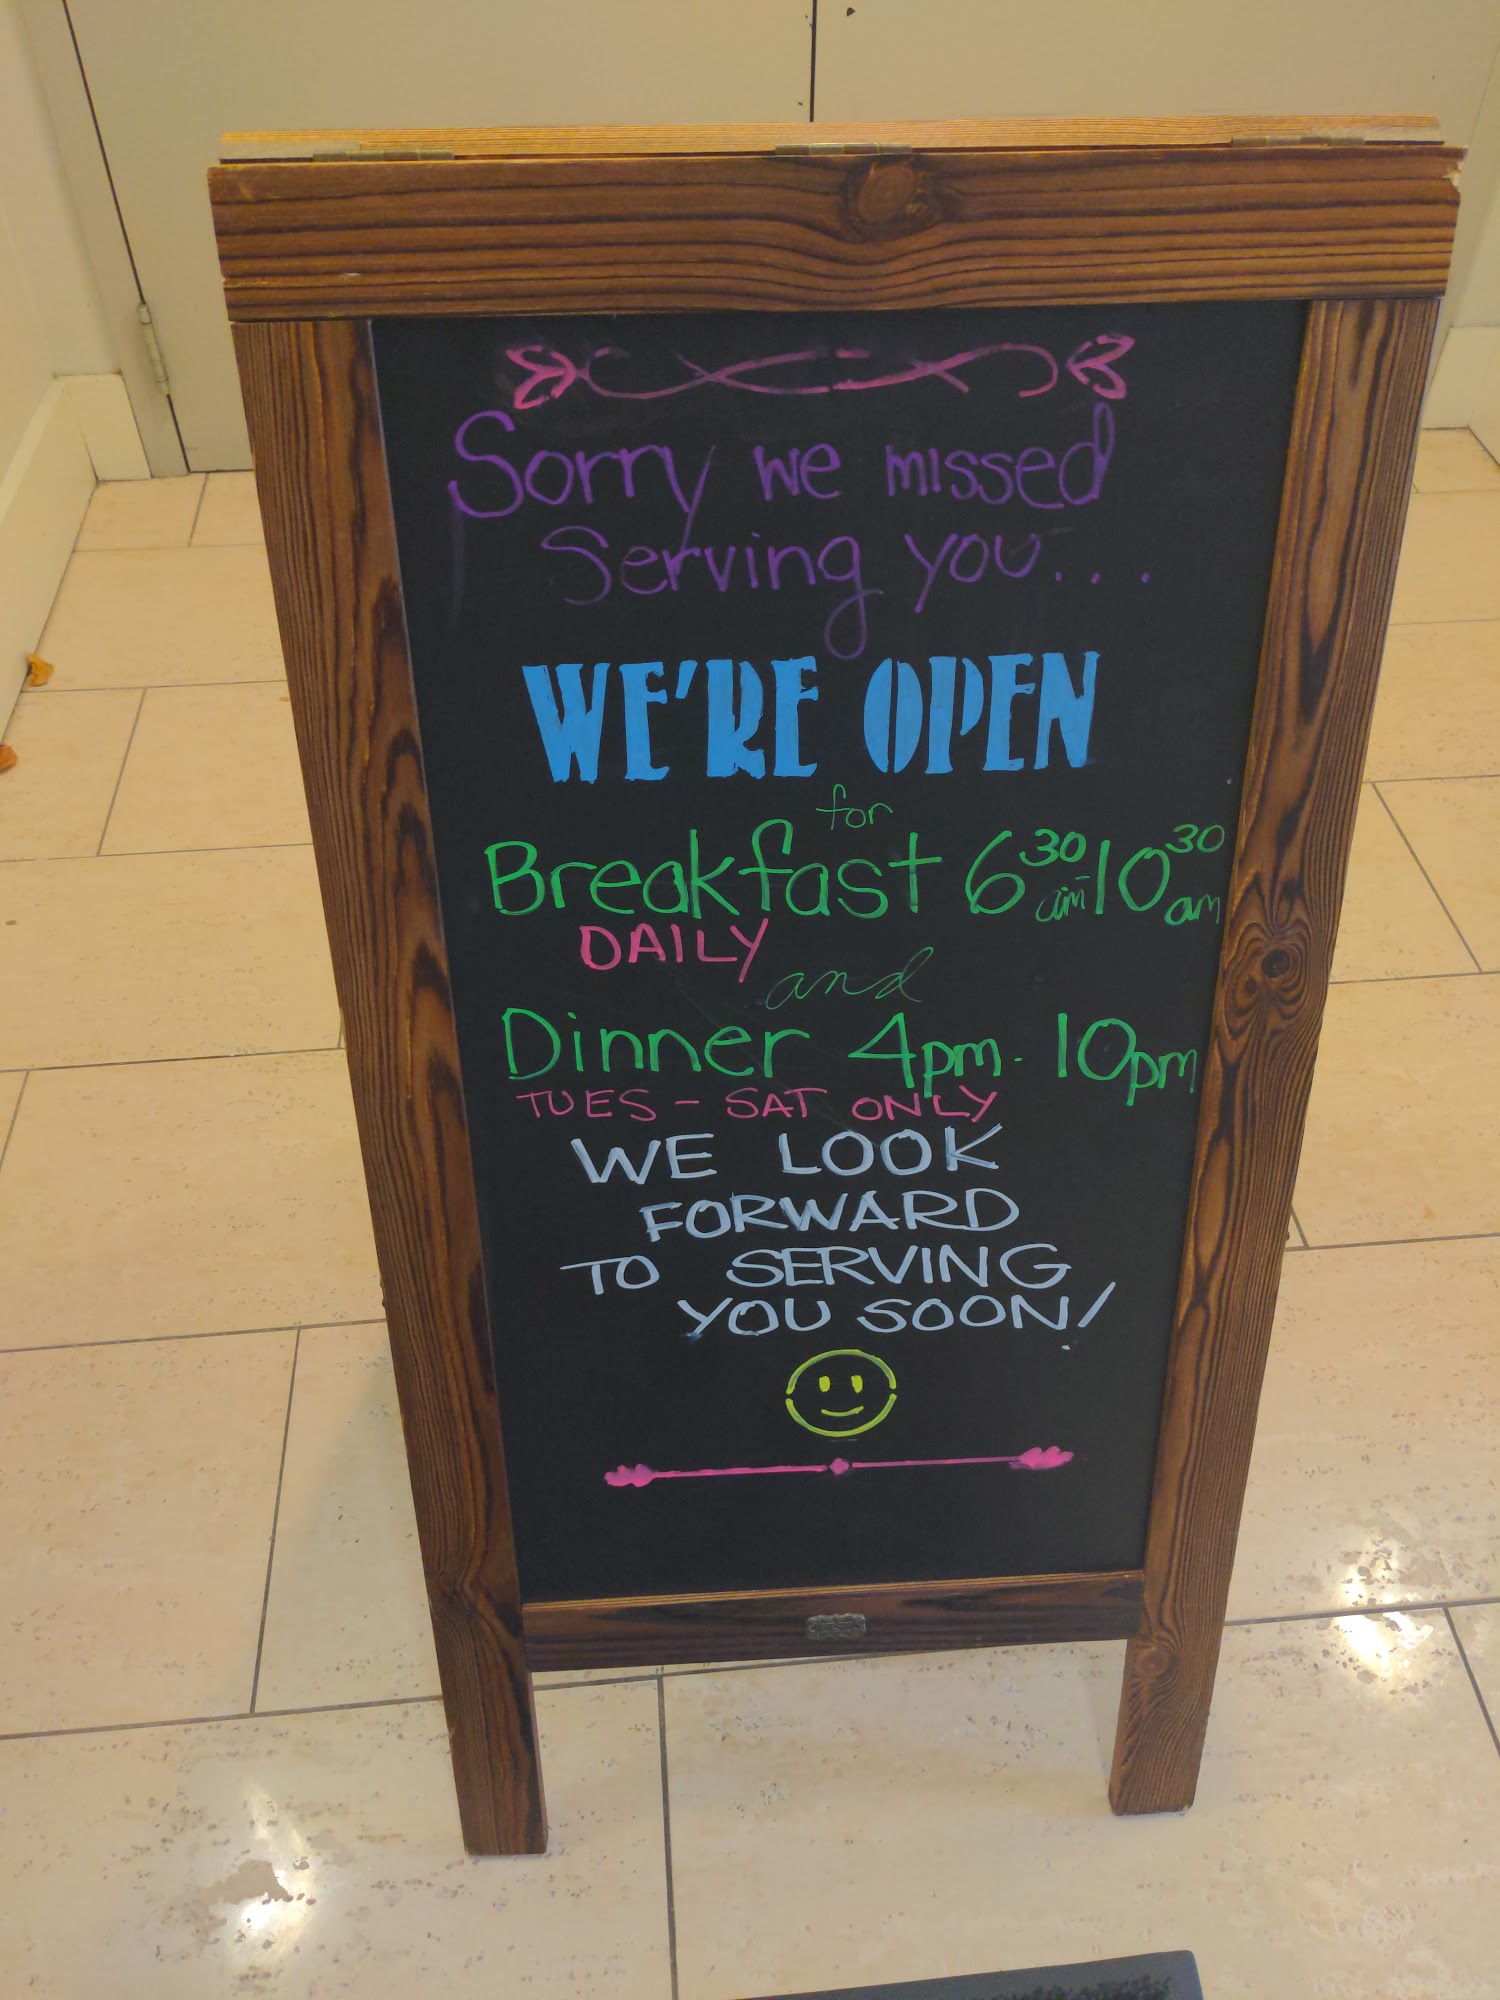 Sorry we missed
Serving you...
WE'RE OPEN
for
Breakfast 6³⁰am-10³⁰am
DAILY
and
Dinner 4pm-10pm
TUES - SAT ONLY
WE LOOK
FORWARD
TO SERVING
YOU SOON!